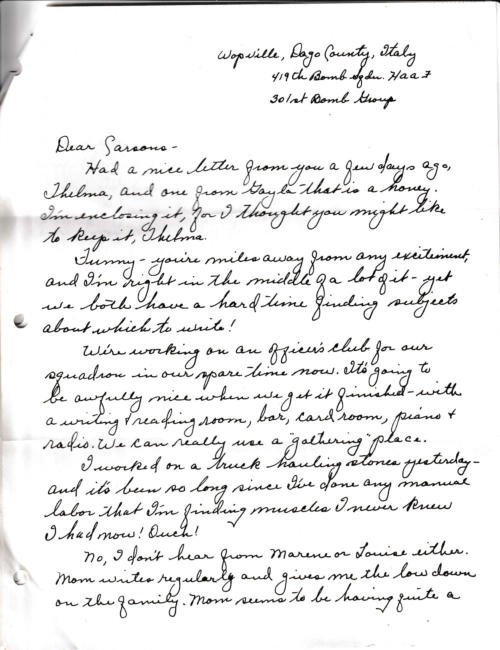 Wopville, Dago County, Italy
419th Bomb Sqdn. H a a F
301st Bomb Group
Dear Parsons -
Had a nice letter from you a few days ago,
Thelma, and one from Gayla that is a honey.
I'm enclosing it, for I thought you might like
to keep it, Thelma.
Funny - you're miles away from any excitement,
and I'm right in the middle of a lot of it - yet
we both have a hard time finding subjects
about which to write!
We're working on an officer's club for our
squadron in our spare time now. It's going to
be awfully nice when we get it finished - with
a writing & reading room, bar, card room, piano &
radio. We can really use a "gathering" place.
I worked on a truck hauling stones yesterday -
and it's been so long since I've done any manual
labor that I'm finding muscles I never knew
I had now! Ouch!
No, I don't hear from Marene or Louise either.
Mom writes regularly and gives me the low down
on the family. Mom seems to be having quite a